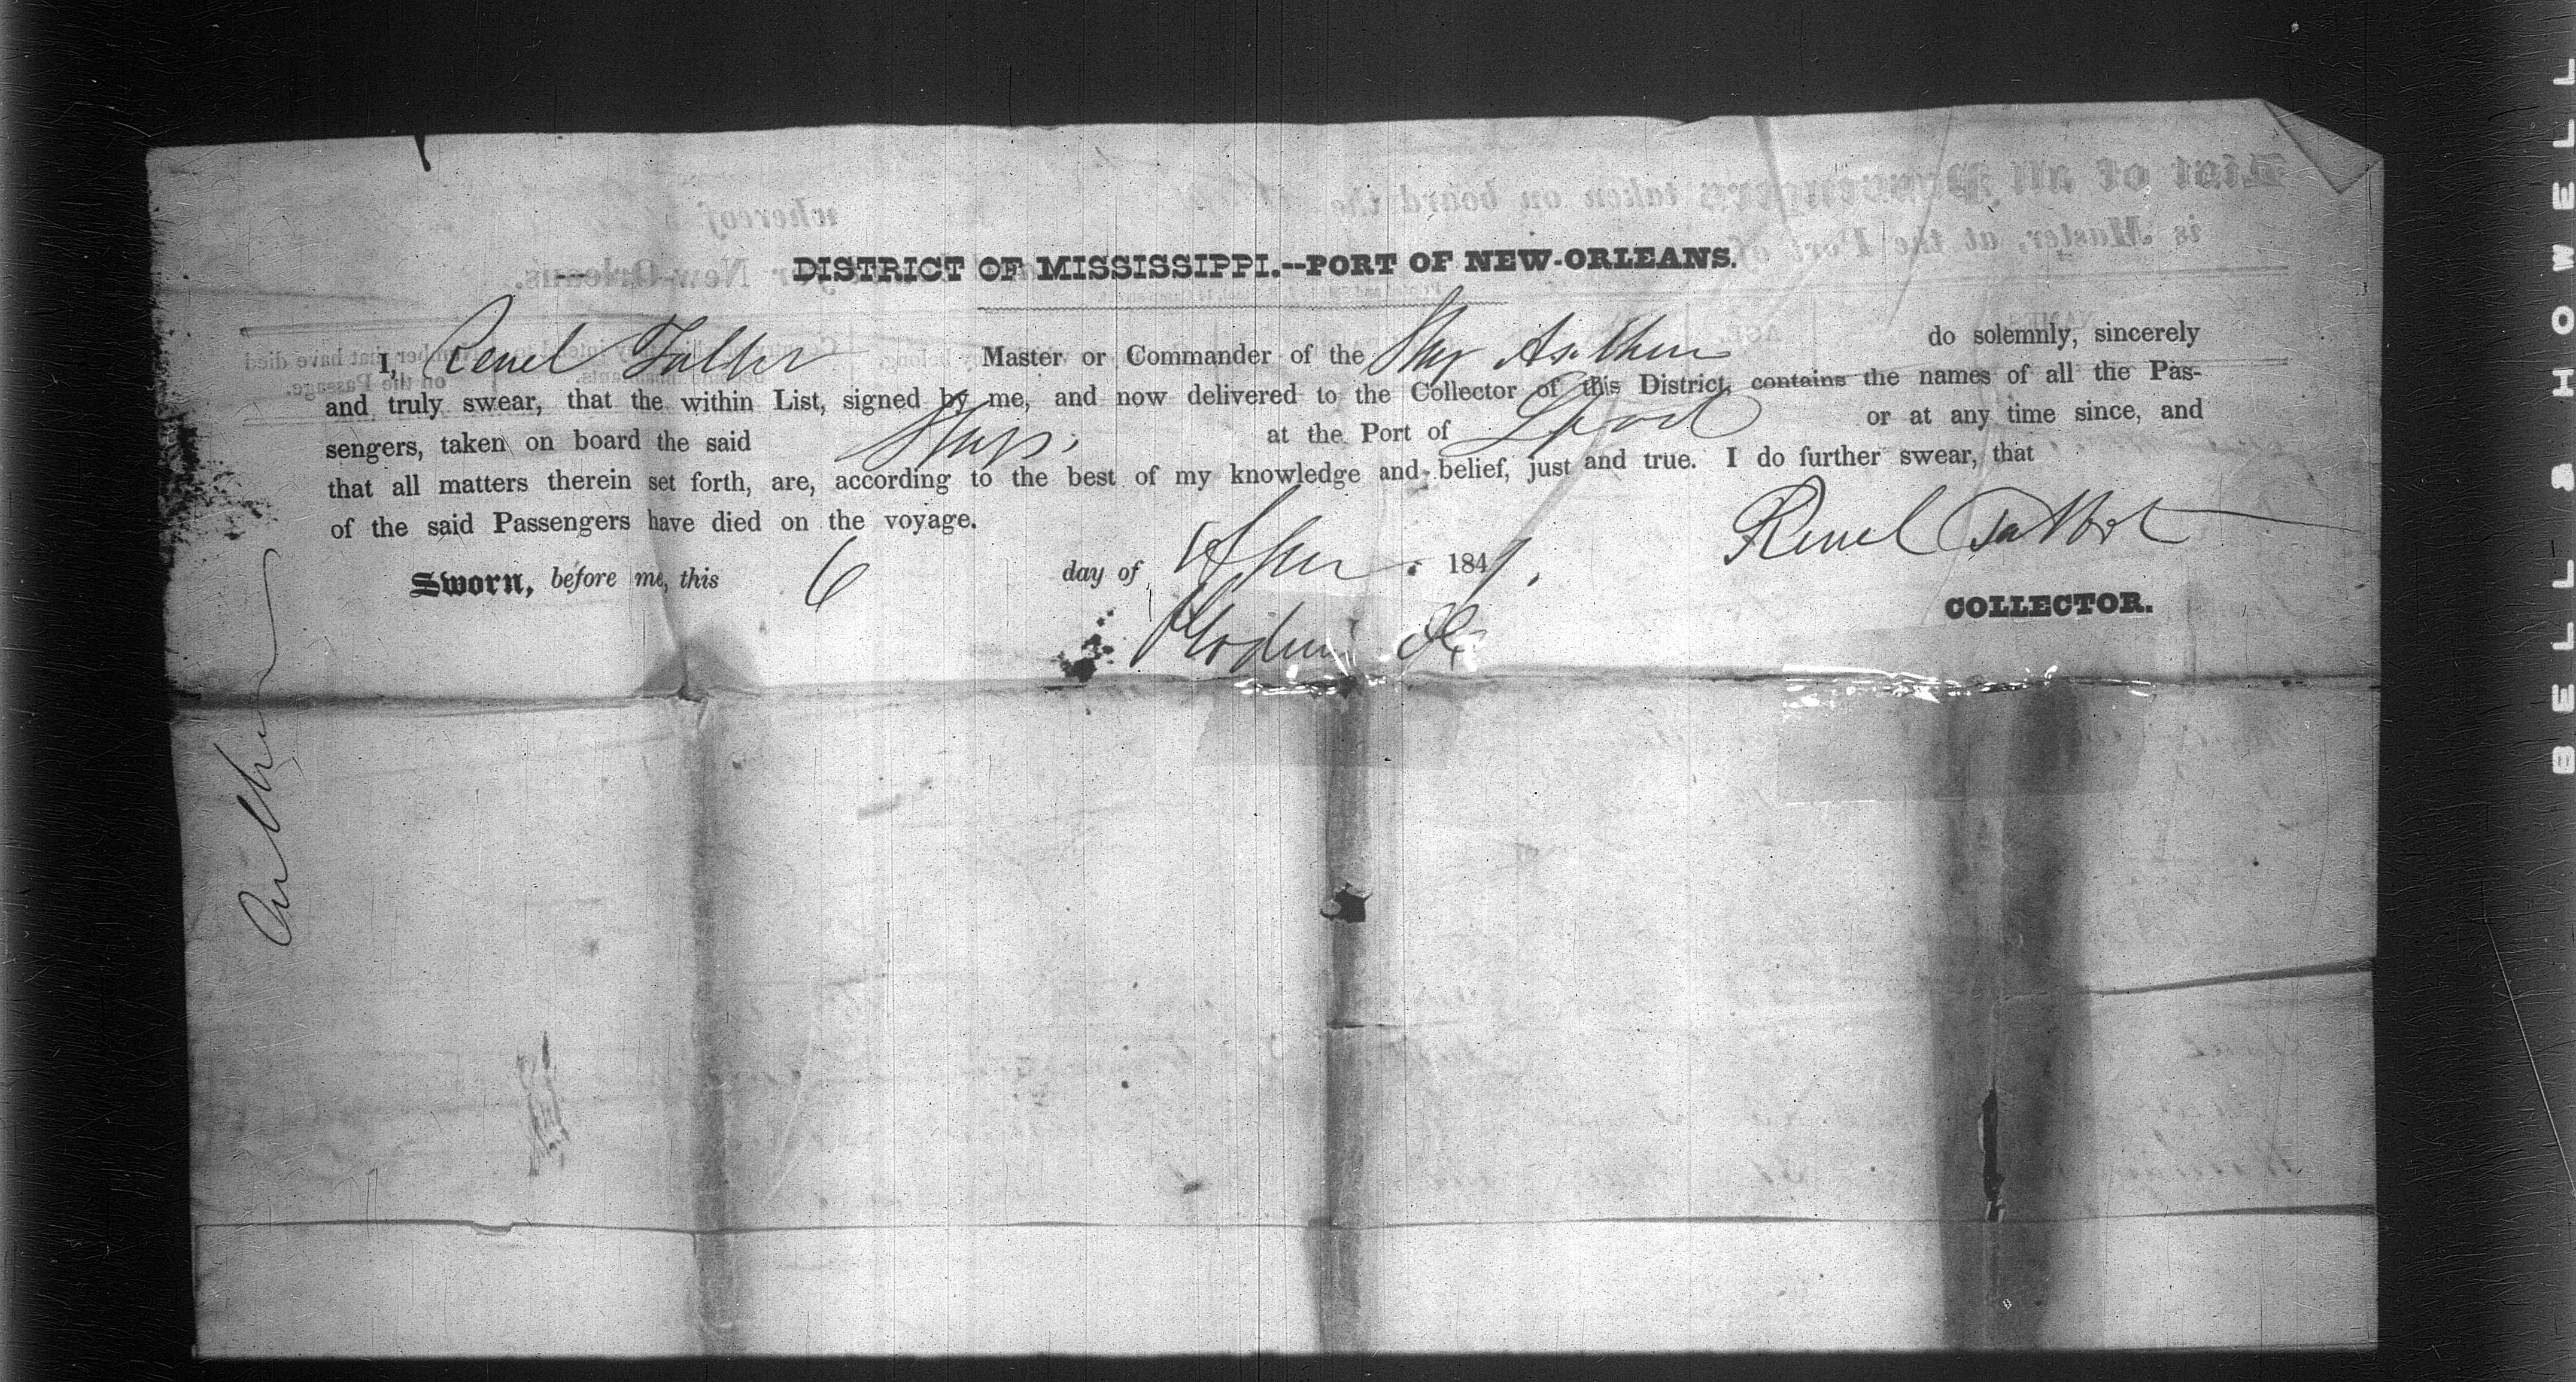 DISTRICT OF MISSISSIPPI.--PORT OF NEW-ORLEANS.
I, Reuel Talbot Master or Commander of the Ship do solemnly, sincerely
and truly swear, that the within List, signed by me, and now delivered to the Collector of this District, contains the names of all the Pas-
sengers, taken on board the said Ship. at the Port of Lpool or at any time since, and
that all matters therein set forth, are, according to the best of my knowledge and belief, just and true. I do further swear, that
of the said Passengers have died on the voyage.
Reuel Talbot
Sworn, before me, this 6 day of 184
COLLECTOR.
List of all Passengers taken on board the
whereof
is Master, at the Port of
New-Orleans.
BELL & HOWELL